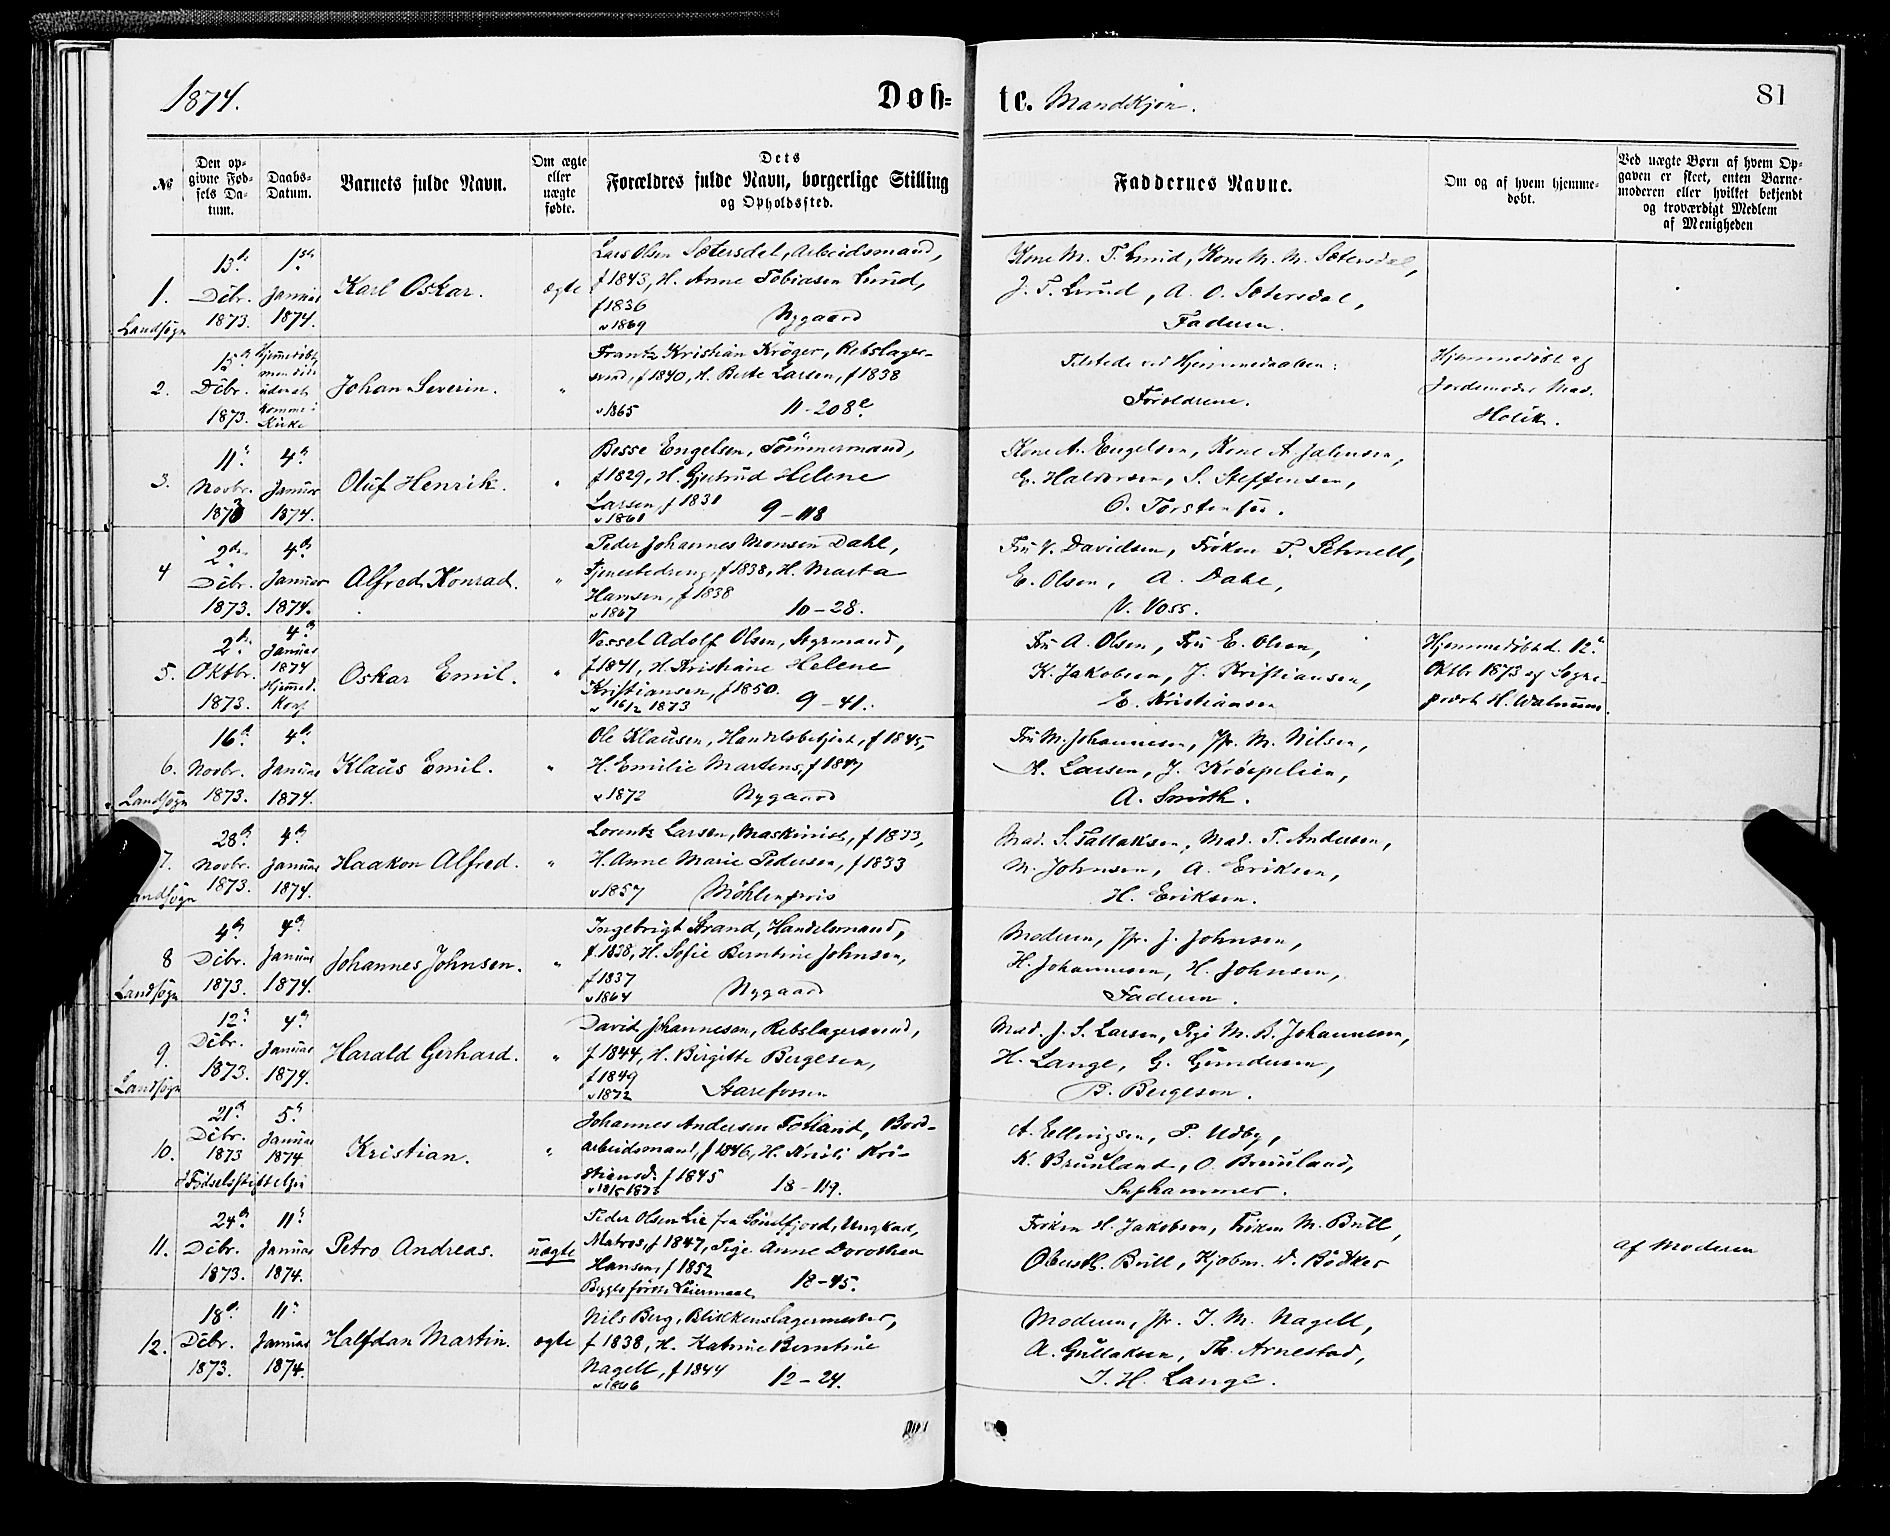 1874.
Døb-
te. Mandkjön.
81
No
Den op-
givne Fød-
sels Da-
tum.
Daabs-
Datum.
Barnets fulde Navn.
Om ægte
eller
uægte
fødte.
Dets
Forældres fulde Navn, borgerlige Stilling
og Opholdssted.
Faddernes Navne.
Om og af hvem hjemme-
døbt.
Ved uægte Børn af hvem Op-
gaven er skeet, enten Barne-
moderen eller hvilket bekjendt
og troværdigt Medlem
af Menigheden
1.
Landsogn
13de
Dcbr.
1873.
1ste
Januar
1874.
Karl Oskar.
ægte
Lars Olsen Sætersdal, Arbeidsmand,
f 1843, H. Anne Tobiasen Lund,
f 1836
v 1869 Nygaard
Kone M. T. Lund, Kone M. M. Sætersdal,
J. T. Lund, A. O. Sætersdal,
Faderen.
2.
15de
Dcbr.
1873.
Hjemmedöbt,
men döde
uden at
komme i
Kirke
Johan Severin.
"
Frantz Kristian Kröger, Rebslager-
svend, f 1840, H. Berte Larsen, f 1838
v 1865 11-208e
Tilstede ved Hjemmedaaben:
Forældrene.
Hjemmedöbt af
Jordemoder Mad.
Holck.
3.
11te
Novbr.
1873
4de
Januar
1874.
Oluf Henrik.
"
Besse Engelsen, Tömmermand,
f 1829, H. Gjertrud Helene
Larsen, f 1831
v 1861 9-118
Kone A. Engelsen, Kone A. Johnsen,
E. Haldorsen, S. Steffensen,
O. Torstensen.
4
2den
Dcbr.
1873.
4de
Januar
1874.
Alfred Konrad.
"
Peder Johannes Monsen Dahl,
Tjenestedreng, f 1838, H. Marta
Hansen, f 1838
v 1867 10-28.
Fru V. Davidsen, Fröken T. Schnell,
E. Olsen, A. Dahl,
V. Voss.
5.
2den
Oktbr.
1873.
4de
Januar
1874
Hjemmed.
Konf.
Oskar Emil.
"
Vessel Adolf Olsen, Styrmand,
f 1841, H. Kristiane Helene
Kristiansen, f 1850.
v 16/2 1873 9-41.
Fru A. Olsen, Fru E. Olsen,
K. Jakobsen, J. Kristiansen,
E. Kristiansen
Hjemmedöbt d. 12te
Oktbr 1873 af Sogne-
præst H. Walnum.
6.
Landsogn
16de
Novbr.
1873.
4de
Januar
1874.
Klaus Emil.
"
Ole Klausen, Handelsbetjent, f 1845,
H. Emilie Martens, f 1847
v 1872 Nygaard
Fru M. Johannesen, Jfr. M. Nilsen,
A. Larsen, J. Kröepelien,
A. Smith.
7.
Landsogn
28de
Novbr.
1873.
4de
Januar
1874.
Haakon Alfred.
"
Lorentz Larsen, Maskinist, f 1833,
H. Anne Marie Pedersen, f 1833
v 1857 Möhlenpris
Mad. S. Tallaksen, Mad. T. Andersen,
M. Johnsen, A. Eriksen,
H. Eriksen.
8
Landsogn
4de
Dcbr.
1873.
4de
Januar
1874.
Johannes Johnsen.
"
Ingebrigt Strand, Handelsmand,
f 1838, H. Sofie Berntine Johnsen,
f 1837
v 1864 Nygaard
Moderen, Jfr. J. Johnsen,
H. Johannesen, H. Johnsen,
Faderen.
9
Landsogn
12te
Dcbr.
1873.
4de
Januar
1874.
Harald Gerhard.
"
David Johannesen, Rebslagersvend,
f 1844, H. Birgitte Bergesen,
f 1849
v 1872 Starefossen
Mad. J. S. Larsen, Pige M. B. Johannesen,
H. Lange, G. Gundersen,
B. Bergesen.
10.
21de
Dcbr.
1873
i Födselsstiftelsen
5te
Januar
1874
Kristian.
"
Johannes Andersen Totland, Bord-
arbeidsmand, f 1846, H. Kristi Kri-
stiansd. f 1845
v 18/5 1873 18-119.
A. Ellingsen, P. Udby,
K. Bruuland, O. Bruuland,
Snphammer.
11.
24de
Dcbr.
1873.
11te
Januar
1874.
Petro Andreas.
uægte
Peder Olsen Lie fra Söndfjord, Ungkarl,
Matros, f 1847, Pige Anne Dorothea
Hansen, f 1852
Begges förste Leiermaal 18-45.
Fröken H. Jakobsen, Fröken M. Bull,
Oberstl. Bull, Kjöbm. W. Bödker
af Moderen
12.
18de
Dcbr.
1873.
11te
Januar
1874.
Halfdan Martin.
ægte
Nils Berg, Blikkenslagermester,
f 1838, H. Katrine Berntine
Nagell, f 1844
v 1866 12-24.
Moderen, Jfr. I. M. Nagell,
A. Gullaksen, Th. Arnestad,
J. H. Lange.